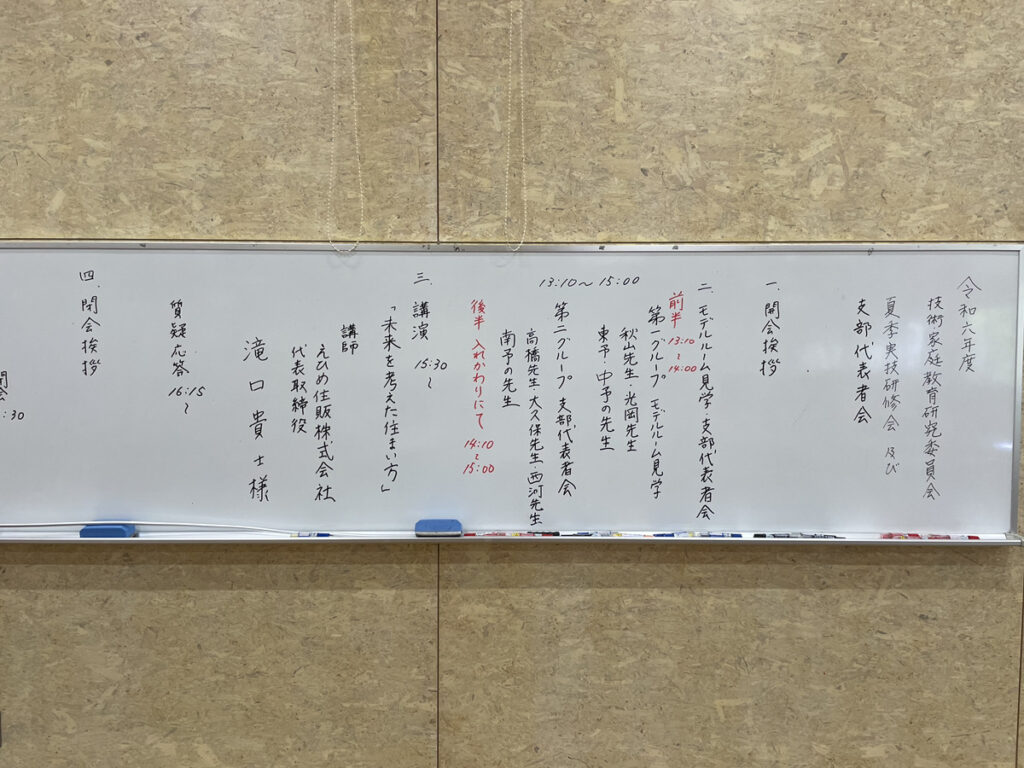 令和六年度
技術家庭教育研究委員会
夏季実技研修会 及び
支部代表者会
一.開会挨拶
二.モデルルーム見学・支部代表者会
前半 13:10〜14:00
第一グループ モデルルーム見学
秋山先生・光岡先生
東予・中予の先生
13:10〜15:00
第二グループ 支部代表者会
高橋先生・大久保先生・西河先生
南予の先生
後半 入れかわりにて 14:10〜15:00
三.講演 15:30〜
「未来を考えた住まい方」
講師
えひめ住販株式会社
代表取締役
滝口貴士様
質疑応答 16:15〜
四.閉会挨拶
:30